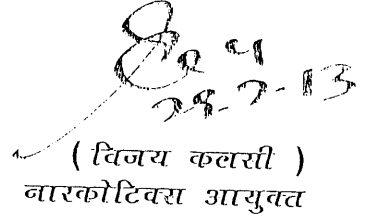 28-2-13
( विजय कलसी )
नारकोटिक्स आयुक्त